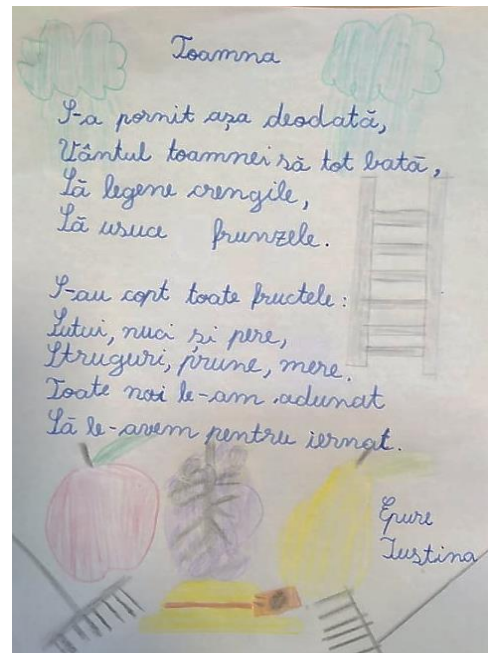 Toamna
S-a pornit așa deodată,
Vântul toamnei să tot bată,
Să legene crengile,
Să usuce frunzele.
S-au copt toate fructele:
Gutui, nuci și pere,
Struguri, prune, mere.
Toate noi le-am adunat
Să le-avem pentru iernat.
Epure
Iustina